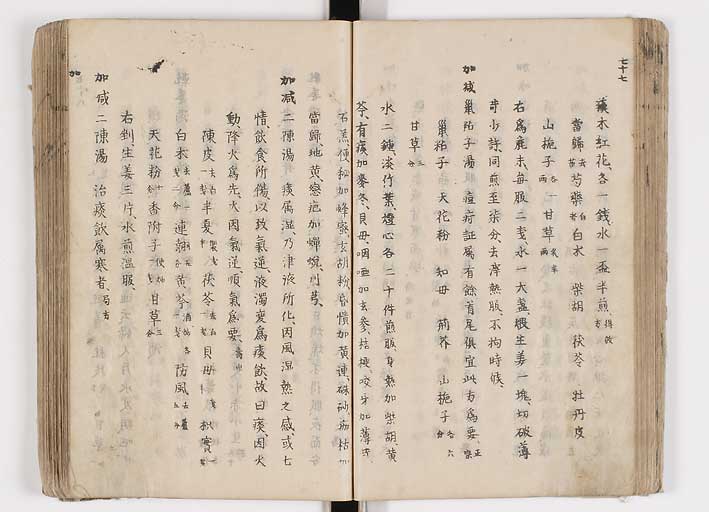 七十七
木紅花、各一錢、水一盃半煎
當歸 芍藥 白朮 柴胡 茯苓 牡丹皮
山梔子 各一兩 甘草
右爲麁末、每服二戔、水一大盞、煨生姜一塊、切破、薄
荷少許、同煎至柒分、去滓熱服、不拘時候、
加减鼠粘子湯 痘疹証属有餘首尾俱宜此方爲要、
鼠粘子 天花粉 知母 荊芥 山梔子 各六分
甘草 三分
水二鍾淡竹葉、燈心各二十件煎服、身熱加柴胡、黄
芩、有痰加麥冬、貝母、咽唖加玄參、桔梗、咬牙加薄荷
石羔、便秘加蜂蜜、玄胡
當歸、地黄、瘡疤加蟬蛻、
加减二陳湯 痰属湿、乃津液所化、因風湿熱之感、或七
情飲食所傷、以致氣逆、液濁变爲痰飲、故曰痰因火
動、降火爲先、火因氣逆、順氣爲要、
陳皮 半夏 茯苓 貝母 枳實
白朮 連翹 黄芩 防風
天花粉 香附子 甘草
右剉、生姜三片、水煎温服、
加减二陳湯 治痰飲属寒者、